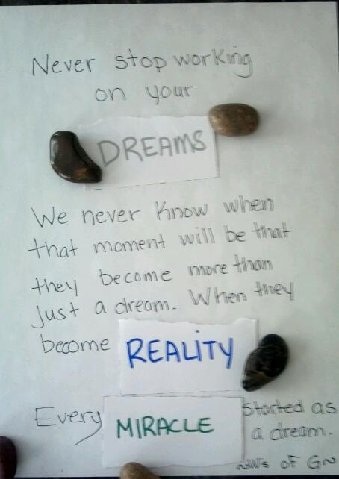 Never stop working
on your
DREAMS
We never know when
that moment will be that
they become more than
just a dream. When they
become REALITY
Every MIRACLE started as
a dream.
of